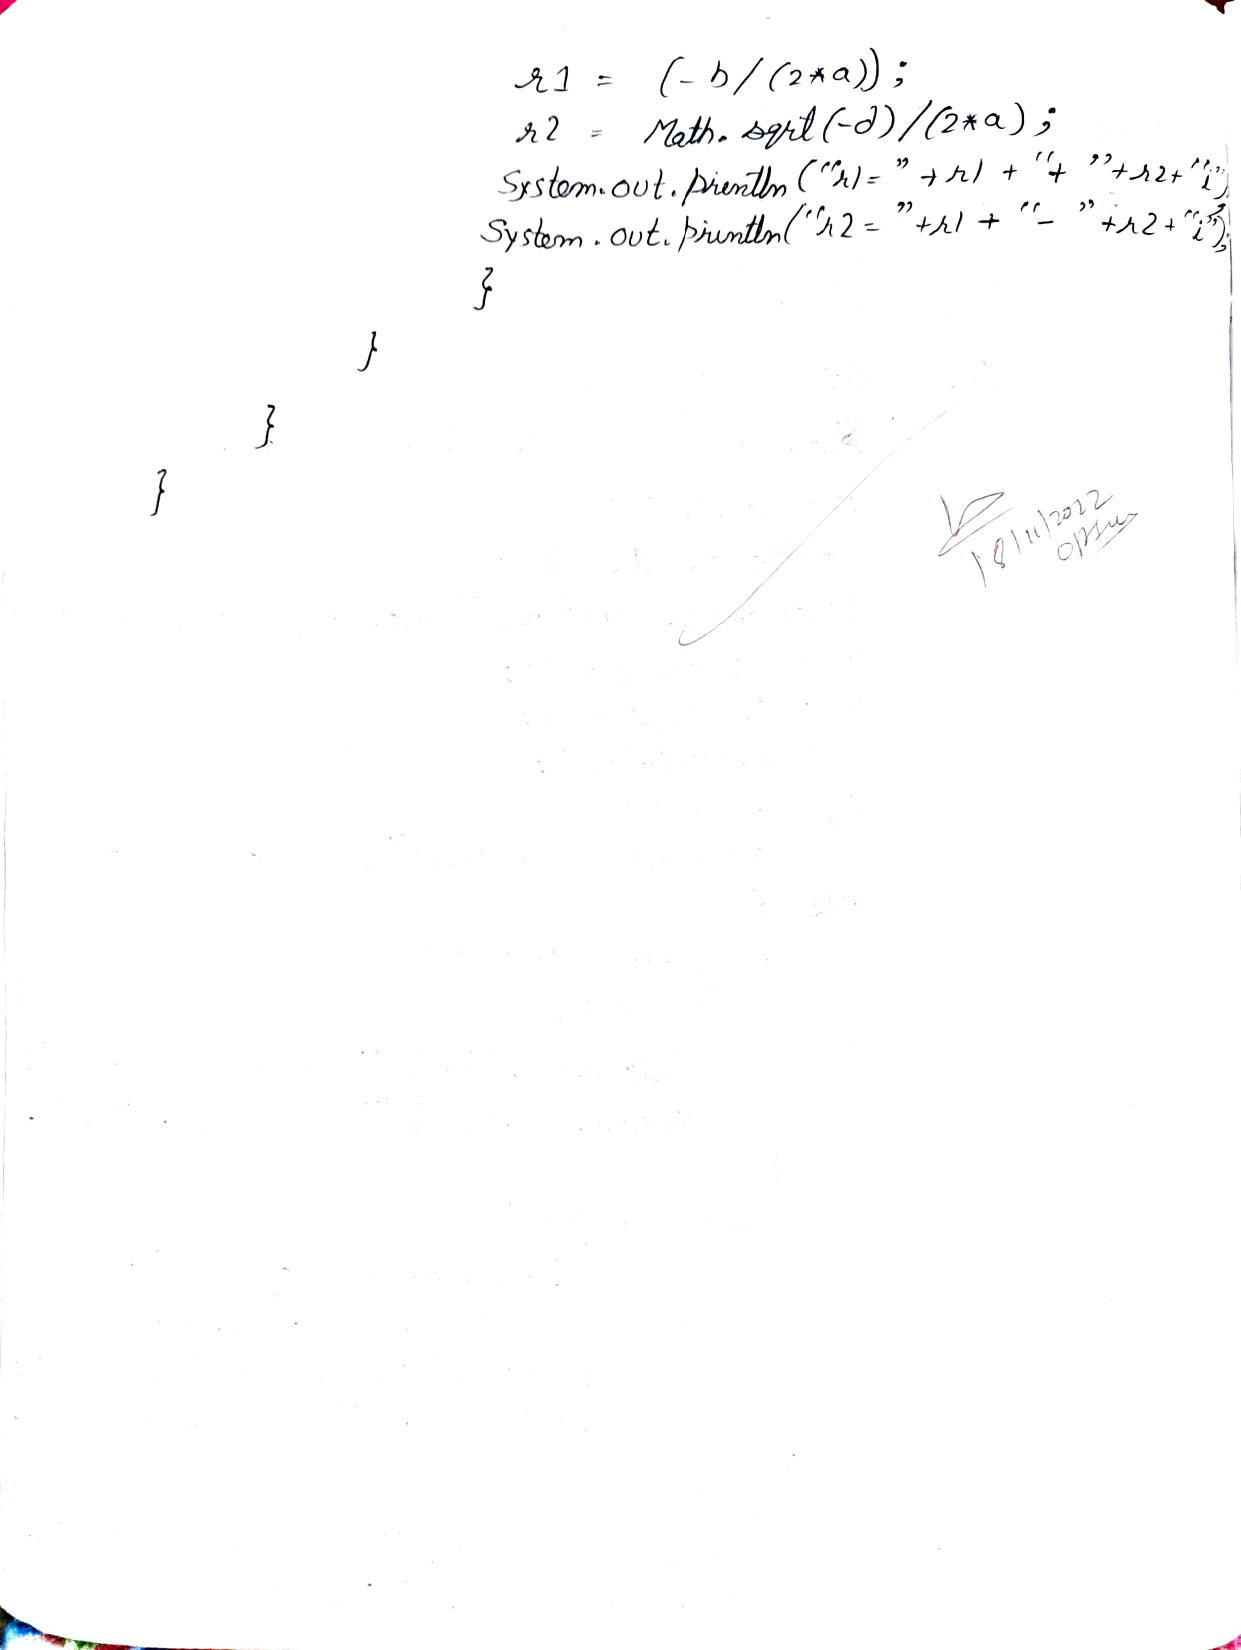 r1 = (-b/(2*a));
r2 = Math.sqrt(-d)/(2*a);
System.out.println("r1= "+r1+"+ "+r2+"i");
System.out.println("r2= "+r1+"- "+r2+"i");
}
}
}
}
18/11/2022